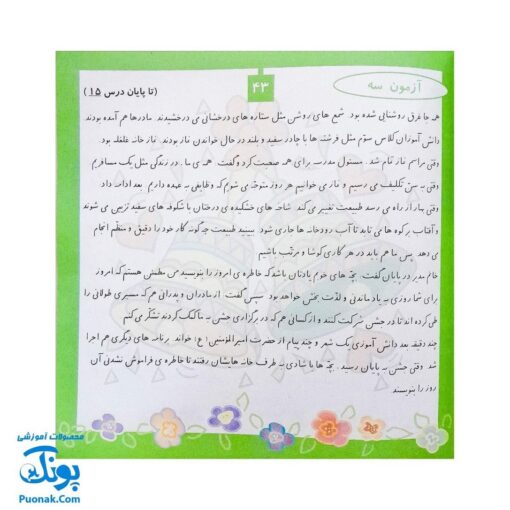 آزمون سه
۴۳
(تا پایان درس ۱۵)
همه جا غرق روشنایی شده بود. شمع های روشن مثل ستاره های درخشانی می درخشیدند. مادرها هم آمده بودند.
دانش آموزان کلاس سوّم مثل فرشته ها با چادر سفید و بلند در حال خواندن نماز بودند. نمازخانه غلغله بود.
وقتی مراسم نماز تمام شد. مسئول مدرسه برای همه صحبت کرد و گفت. همه ی ما، در زندگی مثل یک مسافریم
وقتی به سنّ تکلیف می رسیم و نماز می خوانیم هر روز متوجّه می شویم که وظایفی به عهده داریم. بعد ادامه داد
وقتی بهار از راه می رسد طبیعت تغییر می کند. شاخه های خشکیده ی درختان با شکوفه های سفید تزیین می شوند
و آفتاب بر کوه ها می تابد تا آب رودخانه ها جاری شود. ببینید طبیعت چگونه کار خود را دقیق و منظّم انجام
می دهد. پس ما هم باید در هر کاری کوشا و مرتّب باشیم
خانم مدیر در پایان گفت. بچّه های خوبم یادتان باشد که خاطره ی امروز را بنویسید. من مطمئن هستم که امروز
برای شما روزی به یاد ماندنی و لذّت بخش خواهد بود. سپس گفت. از مادران و پدرانی هم که مسیری طولانی را
طی کرده اند تا در جشن شرکت کنند و از کسانی هم که در برگزاری جشن به ما کمک کردند تشکّر می کنم
چند دقیقه بعد دانش آموزی یک شعر و چند پیام از حضرت امیرالمؤمنین (ع) خواند. برنامه های دیگری هم اجرا
شد. وقتی جشن به پایان رسید. بچّه ها با شادی به طرف خانه هایشان رفتند تا خاطره ی فراموش نشدنی آن
روز را بنویسند.
محصولات آموزشی
پونک
Puonak.Com